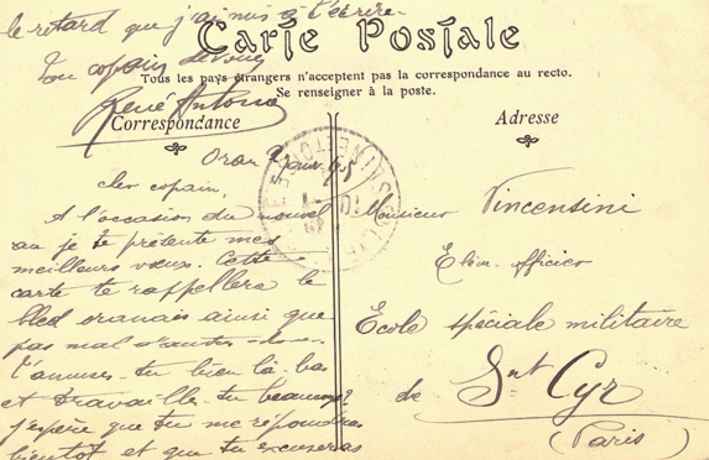 Carte Postale
Tous les pays étrangers n'acceptent pas la correspondance au recto.
Se renseigner à la poste.
Correspondance
Adresse
Oran 2 janv.
cher copain,
A l'occasion du nouvel
an je te présente mes
meilleurs vœux. Cette
carte te rappellera le
bled oranais ainsi que
pas mal d'autres
t'amuses-tu bien là-bas
et travailles-tu beaucoup?
j'espère que tu me répondras
bientôt et que tu excuseras
le retard que j'ai mis à t'écrire.
Ton copain
René Antona
Monsieur Vincensini
Elève-officier
Ecole spéciale militaire
de Snt Cyr
(Paris)